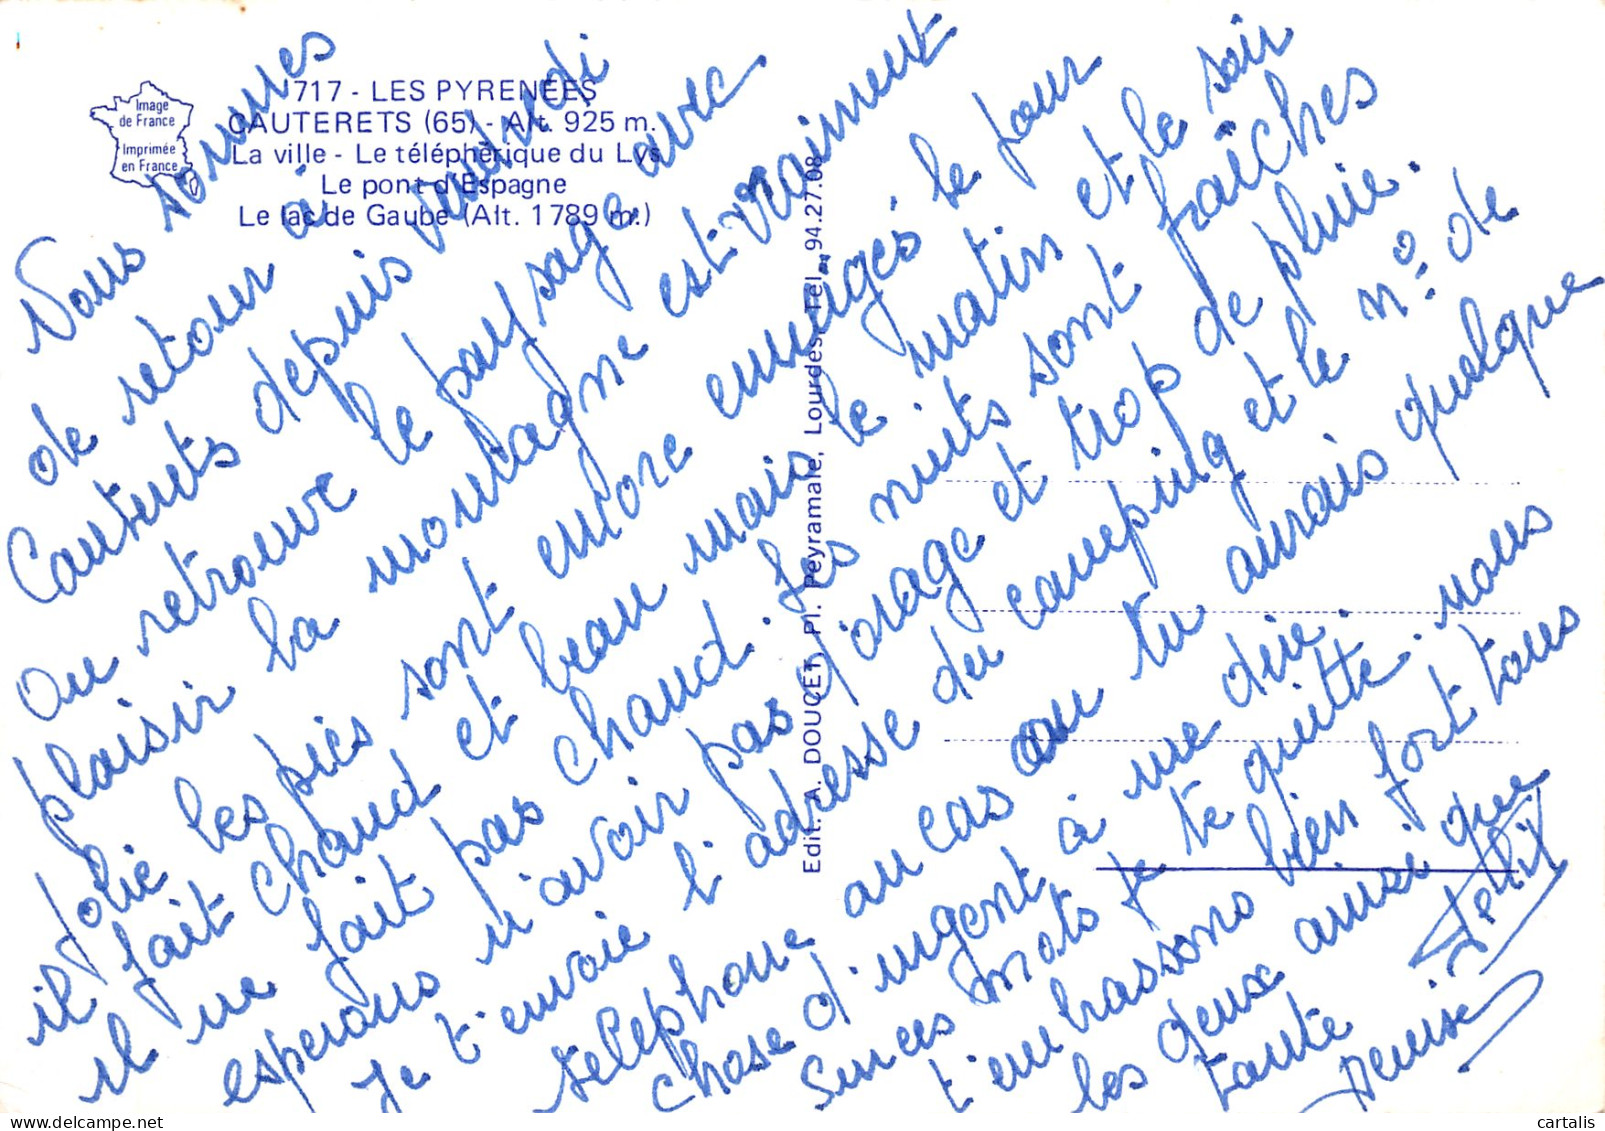 Image
de France
Imprimée
en France
1717 - LES PYRENÉES
CAUTERETS (65) - Alt. 925 m.
La ville - Le téléphérique du Lys
Le pont d'Espagne
Le lac de Gaube (Alt. 1789 m.)
Edit. A. DOUCET, Pl. Peyramale, Lourdes, Tél. 94.27.08
Nous sommes
de retour à
Cauterets depuis vendredi
on retrouve le paysage avec
plaisir la montagne est vraiment
jolie les pics sont encore enneigés, le jour
il fait chaud et beau mais le matin et le soir
il ne fait pas chaud. Les nuits sont fraîches
esperons n'avoir pas d'orage et trop de pluie.
Je t'envoie l'adresse du camping et le n° de
telephone au cas ou tu aurais quelque
chose d'urgent à me dire.
Sur ces mots je te quitte. nous
t'embrassons bien fort tous
les deux ainsi que
tante Félix
Denise
cartalis